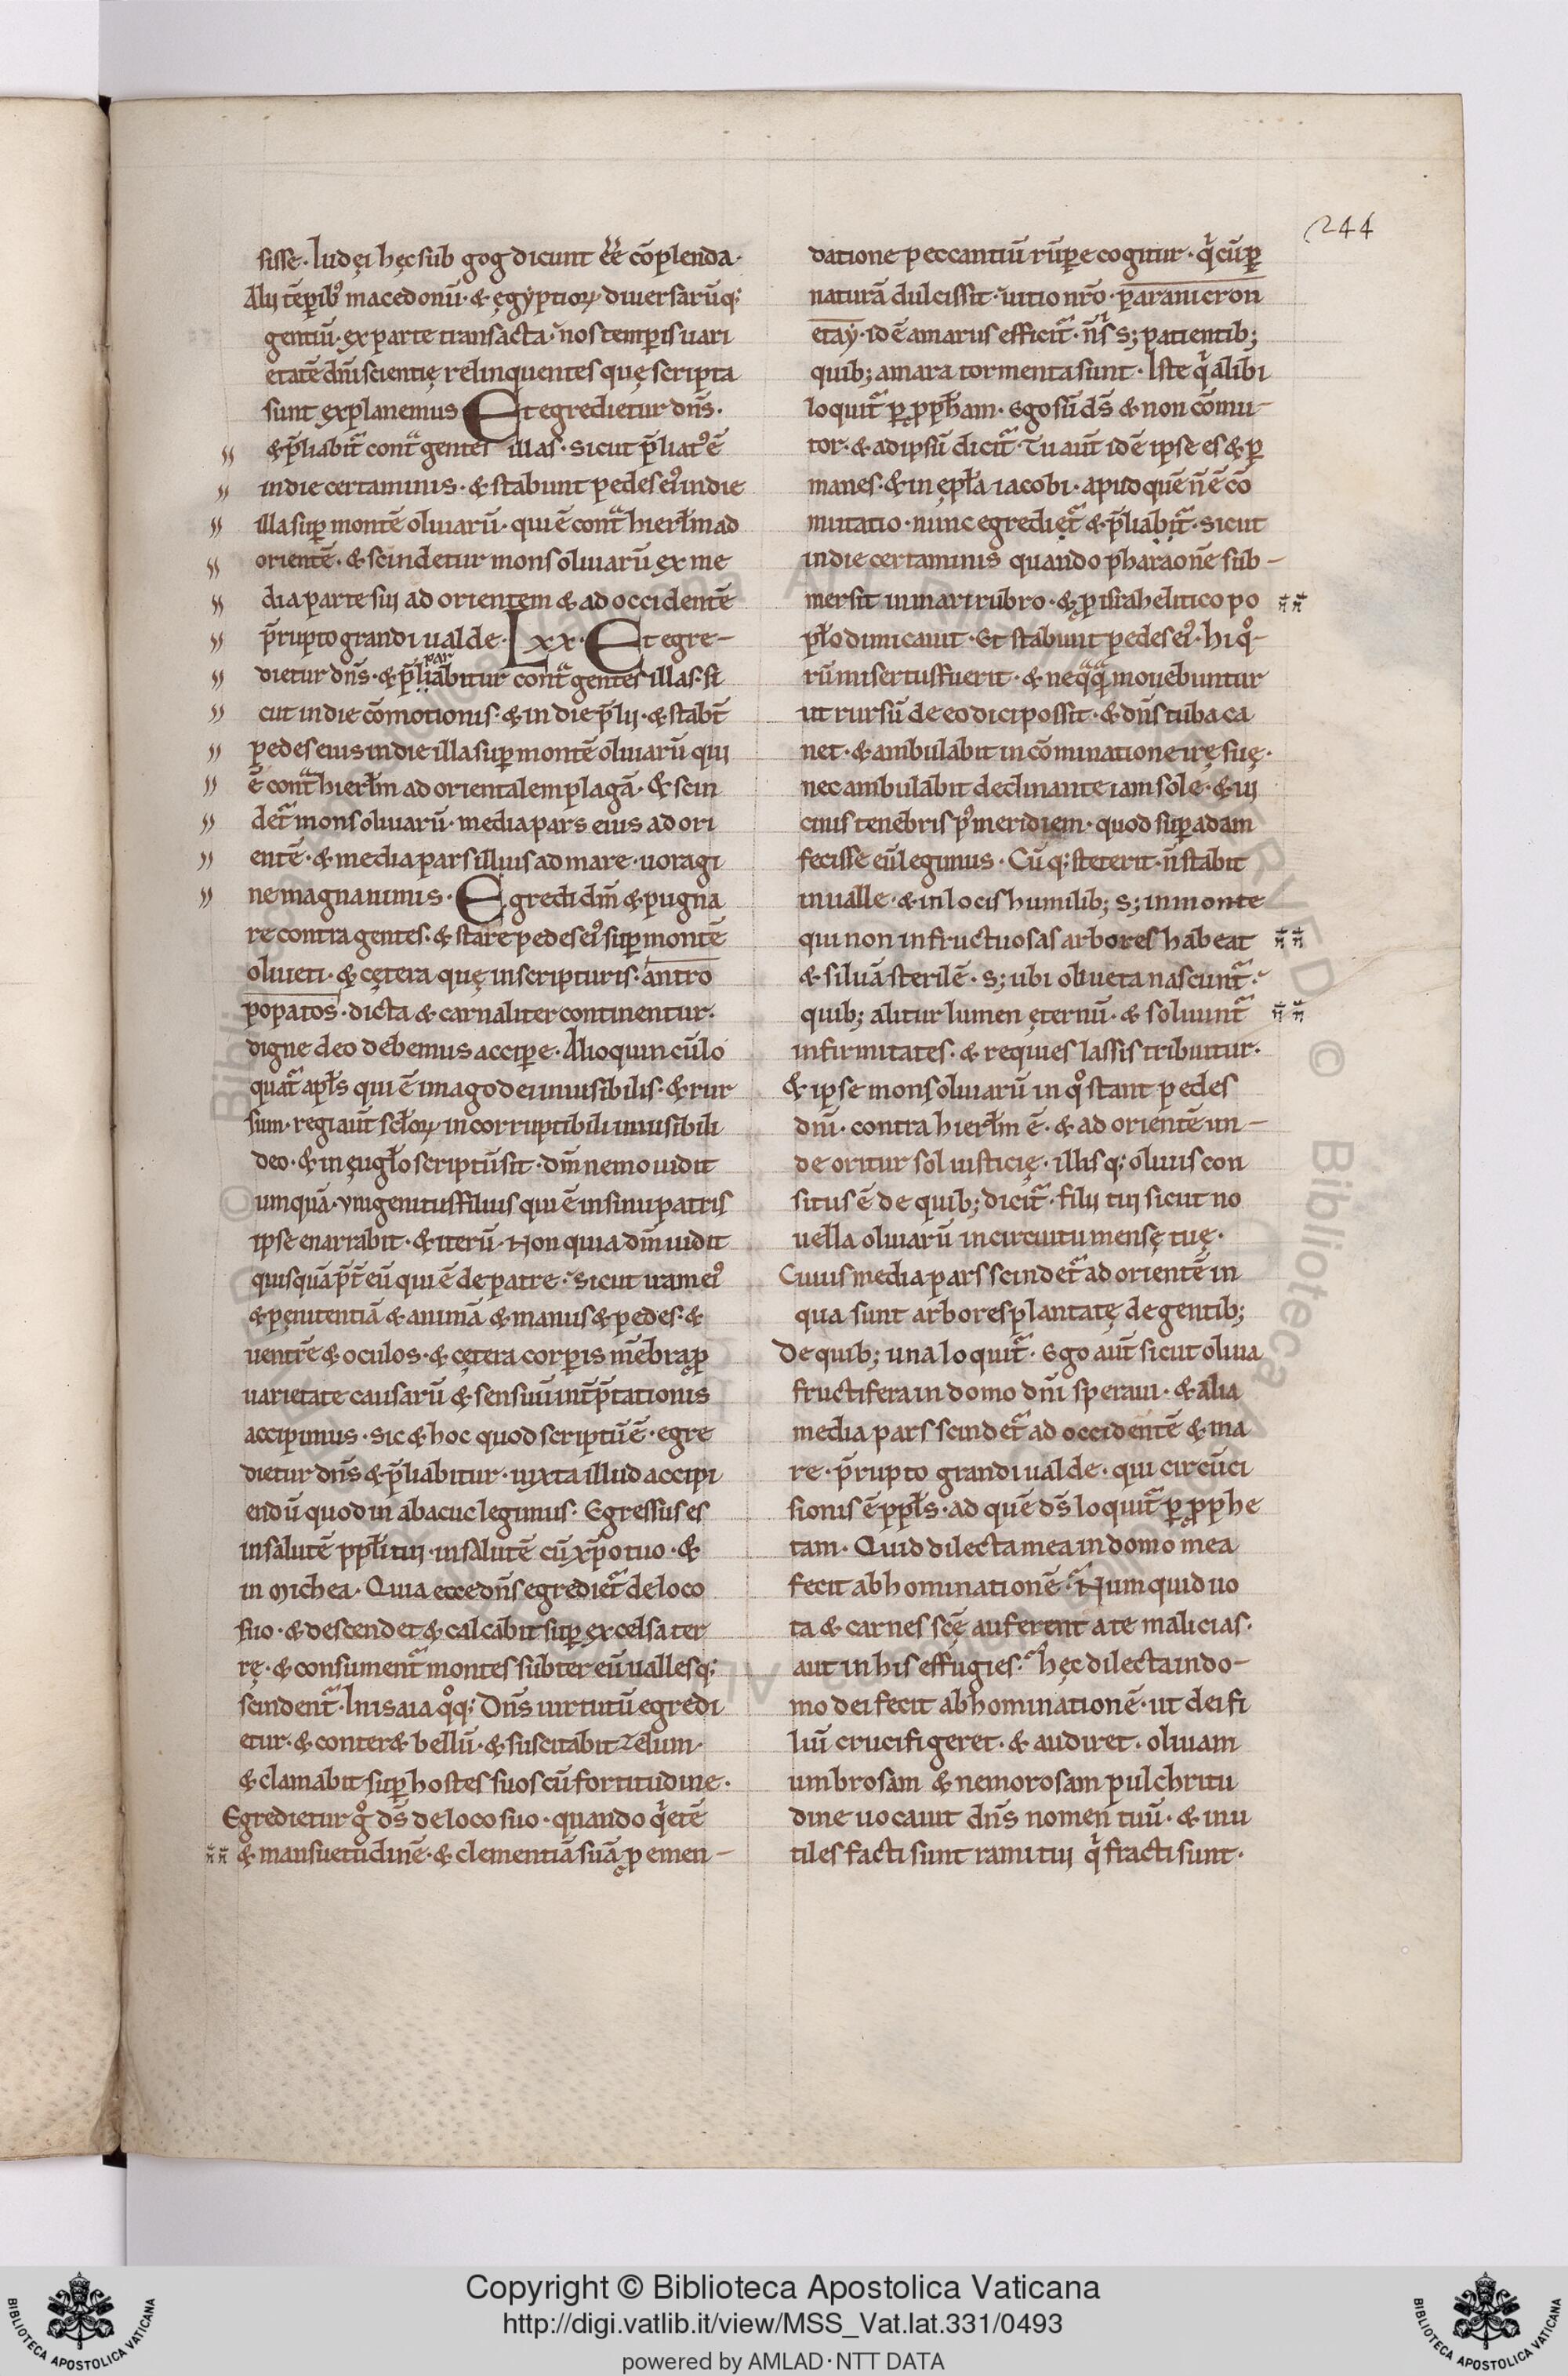 244
sisse · Iudęi hęc sub gog dicunt ee̅ co̅plenda ·
Alij te̅porib; macedonu̅ · & ęgyptioꝝ · diuersaru̅q;
gentiu̅ · ex parte transacta · nos temporis uari
etate̅ dn̅i scientię relinquentes quę scripta
sunt explanemus Et egredietur dn̅s ·
& p̅liabit᷑ contͣ gentes illas · sicut p̅liat᷒ e̅
in die certaminis · & stabunt pedes ei᷒ in die
illa sup̱ monte̅ oliuaru̅ · qui e̅ contͣ hierl̅m ad
oriente̅ · & scindetur mons oliuaru̅ ex me
dia parte sui ad orientem & ad occidente̅
p̅rupto grandi ualde · Lxx · Et egre-
dietur dn̅s · & p̅liabitur contͣ gentes illas · si
cut in die co̅motionis · & in die p̅lij · & stabt̅
pedes eius in die illa sup̱ monte̅ oliuaru̅ qui
e̅ contͣ hierl̅m ad orientalem plaga̅ · & scin
det᷑ mons oliuaru̅ · media pars eius ad ori
ente̅ · & media pars illius ad mare · uoragi
ne magna nimis · Egredi dm̅ & pugna
re contra gentes · & stare pedes ei᷒ sup̱ monte̅
oliueti · & cętera quę in scripturis · antro
popatos · dicta & carnaliter continentur ·
digne deo debemus accipere · Alioquin cu̅ lo
quat᷑ apl̅s qui e̅ imago dei inuisibilis · & rur
sum · regi aut̅ scl̅oꝝ incorruptibili inuisibili
deo · & in eugl̅o scriptu̅ sit · dm̅ nemo uidit
umqua̅ · unigenitus filius qui e̅ in sinu patris
ipse enarrabit · & iteru̅ · Non quia dm̅ uidit
quisqua̅ p̅t̅ eu̅ qui e̅ de patre · sicut iram ei᷒
& pęnitentia̅ & anima̅ & manus & pedes · &
uentre̅ & oculos · & cętera corporis me̅bra ꝓ
uarietate causaru̅ & sensuu̅ int̅p̅tationis
accipimus · sic & hoc quod scriptu̅ e̅ · egre
dietur dn̅s & p̅liabitur · iuxta illud accipi
endu̅ quod in abacuc legimus · Egressus es
in salute̅ ppl̅i tui · in salute̅ cu̅ xp̅o tuo · &
in Michea · Quia ecce dn̅s egrediet᷑ de loco
suo · & descendet & calcabit sup̱ excelsa ter
rę · & consument᷑ montes subter eu̅ uallesq;
scindent᷑ · In isaia qͦq; Dn̅s uirtutu̅ egredi
etur · & conteret bellu̅ · & suscitabit zelum ·
& clamabit sup̱ hostes suos cu̅ fortitudine ·
Egredietur gͦ ds̅ de loco suo · quando qiete̅
& mansuetudine̅ · & clementia̅ sua̅ ꝓ emen-
datione peccantiu̅ ru̅pere cogitur · qͥ cu̅ ꝑ
natura̅ dulcis sit · uitio nr̅o · paranicron
etay · ide̅ amarus efficit᷑ · n̅ sͥ s; patientib;
quib; amara tormenta sunt · Iste qͥ alibi
loquit᷑ ꝑ ꝓph̅am · Ego su̅ ds̅ & non co̅mu-
tor · & ad ipsu̅ dicit᷑ · Tu aut̅ ide̅ ipse es & ꝑ
manes · & in epl̅a iacobi · apud que̅ n̅ e̅ co̅
mutatio · nunc egrediet᷑ & p̅liabit᷑ · sicut
in die certaminis quando pharaone̅ sub-
mersit in mari rubro · & ꝓ israhelitico po
pl̅o dimicauit · Et stabunt pedes ei᷒ · hi qͦ-
ru̅ misertus fuerit · & neqͣqͣ mouebuntur
ut rursu̅ de eo dici possit · & dn̅s tuba ca
net · & ambulabit in co̅minatione irę suę ·
nec ambulabit declinante iam sole · & ui
cinis tenebris p᷒ meridiem · quod sup̱ adam
fecisse eu̅ legimus · Cu̅q; steterit · n̅ stabit
in ualle · & in locis humilib; s; in monte
qui non infructuosas arbores habeat
& silua̅ sterile̅ · s; ubi oliueta nascunt᷑ ·
quib; alitur lumen ęternu̅ · & soluunt᷑
infirmitates · & requies lassis tribuitur ·
& ipse mons oliuaru̅ in qͦ stant pedes
dn̅i · contra hierl̅m e̅ · & ad oriente̅ un-
de oritur sol iusticię · illisq; oliuis con
situs e̅ de quib; dicit᷑ · filij tui sicut no
uella oliuaru̅ in circuitu mensę tuę ·
Cuius media pars scindet᷑ ad oriente̅ in
qua sunt arbores plantatę de gentib;
De quib; una loquit᷑ · Ego aut̅ sicut oliua
fructifera in domo dn̅i speraui · & alia
media pars scindet᷑ ad occidente̅ & ma
re · p̅rupto grandi ualde · qui circu̅ci
sionis e̅ ppl̅s · ad que̅ ds̅ loquit᷑ ꝑ ꝓphe
tam · Quid dilecta mea in domo mea
fecit abhominatione̅ · Numquid uo
ta & carnes sce̅ auferent a te malicias ·
aut in his effugies · hęc dilecta in do-
mo dei fecit abhominatione̅ · ut dei fi
liu̅ crucifigeret · & audiret · oliuam
umbrosam & nemorosam pulchritu
dine uocauit dn̅s nomen tuu̅ · & inu
tiles facti sunt rami tui qͥ fracti sunt ·
Copyright © Biblioteca Apostolica Vaticana
http://digi.vatlib.it/view/MSS_Vat.lat.331/0493
powered by AMLAD · NTT DATA
BIBLIOTECA APOSTOLICA VATICANA
BIBLIOTECA APOSTOLICA VATICANA